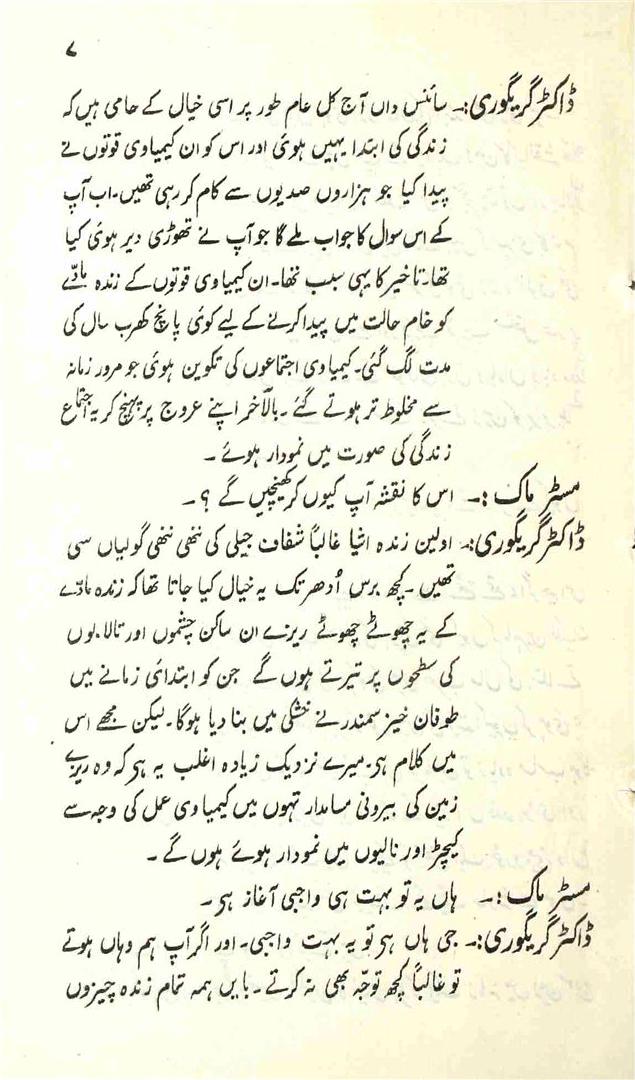 ۷
ڈاکٹر گریگوری:۔ سائنس داں آج کل عام طور پر اسی خیال کے حامی ہیں کہ
زندگی کی ابتدا یہیں ہوئی اور اس کو ان کیمیاوی قوتوں نے
پیدا کیا جو ہزاروں صدیوں سے کام کر رہی تھیں۔ اب آپ
کے اس سوال کا جواب ملے گا جو آپ نے تھوڑی دیر ہوئی کیا
تھا۔ تاخیر کا یہی سبب تھا۔ ان کیمیاوی قوتوں کے زندہ مادّے
کو خام حالت میں پیدا کرنے کے لیے کوئی پانچ کھرب سال کی
مدت لگ گئی۔ کیمیاوی اجتماعوں کی تکوین ہوئی جو مرور زمانہ
سے مخلوط تر ہوتے گئے۔ بالآخر اپنے عروج پر پہنچ کر یہ اجتماع
زندگی کی صورت میں نمودار ہوئے ۔
مسٹر ماک :۔ اس کا نقشہ آپ کیوں کر کھینچیں گے ؟۔
ڈاکٹر گریگوری:۔ اولین زندہ اشیا غالباً شفاف جیلی کی ننھی ننھی گولیاں سی
تھیں ۔ کچھ برس اُدھر تک یہ خیال کیا جاتا تھا کہ زندہ مادّے
کے یہ چھوٹے چھوٹے ریزے ان ساکن چشموں اور تالابوں
کی سطحوں پر تیرتے ہوں گے جن کو ابتدائی زمانے میں
طوفان خیز سمندر نے خشکی میں بنا دیا ہوگا۔ لیکن مجھے اس
میں کلام ہی۔ میرے نزدیک زیادہ اغلب یہ ہی کہ وہ ریزے
زمین کی بیرونی مسامدار تہوں میں کیمیاوی عمل کی وجہ سے
کیچڑ اور نالیوں میں نمودار ہوئے ہوں گے ۔
مسٹر ماک :۔ ہاں یہ تو بہت ہی واجبی آغاز ہی ۔
ڈاکٹر گریگوری:۔ جی ہاں ہی تو یہ بہت واجبی۔ اور اگر آپ ہم وہاں ہوتے
تو غالباً کچھ توجّہ بھی نہ کرتے ۔ بایں ہمہ تمام زندہ چیزوں